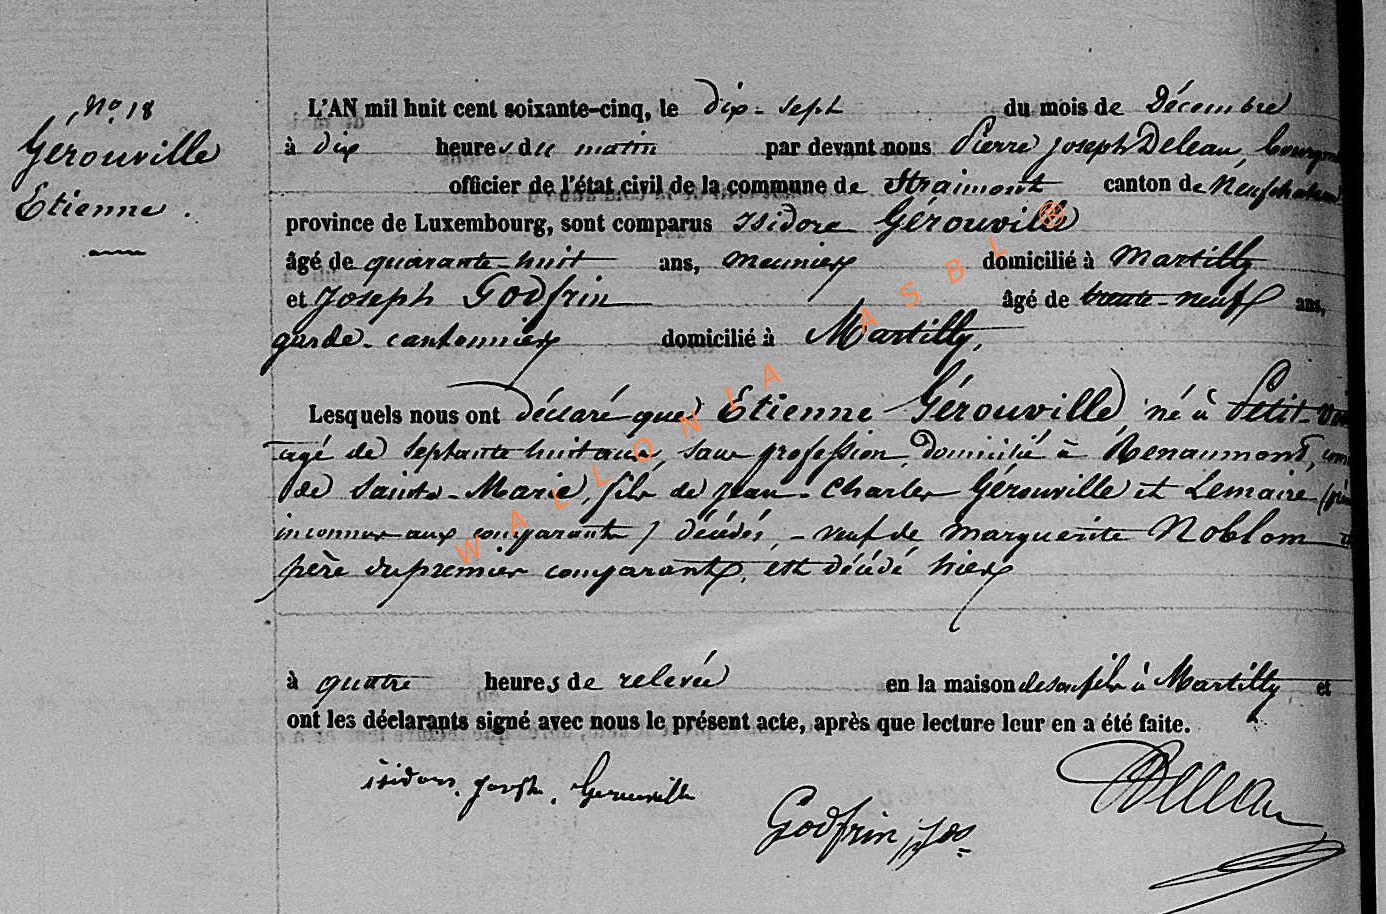 No 18
Gérouville
Etienne.
L'AN mil huit cent soixante-cinq, le dix-sept du mois de Décembre
à dix heures du matin par devant nous Pierre Joseph Deleau,
officier de l'état civil de la commune de Straimont canton de Neufchateau
province de Luxembourg, sont comparus Isidore Gérouville
âgé de quarante huit ans, meunier domicilié à Martilly
et Joseph Godfrin âgé de trente-neuf ans,
garde-cantonnier domicilié à Martilly,
Lesquels nous ont déclaré que Etienne Gérouville, né à Petit-
agé de septante huit ans, sans profession, domicilié à Renaumont,
de Sainte-Marie, fils de Jean-Charles Gérouville et Lemaire
inconnus aux comparants) décédés, - veuf de Marguerite Noblom
père du premier comparant, est décédé hier
à quatre heures de relevée en la maison de son fils à Martilly et
ont les déclarants signé avec nous le présent acte, après que lecture leur en a été faite.
isidore. joseph. Gerouville
Godfrin, Jos
Deleau
WALLONIA ASBL ®